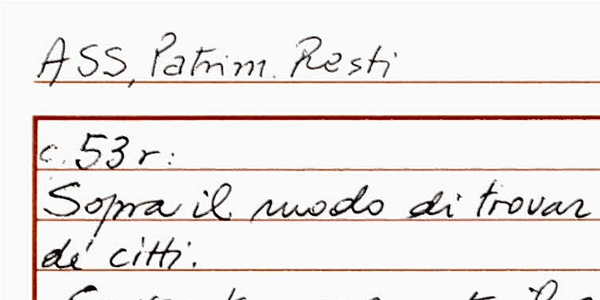 ASS, Patrim. Resti
c. 53 r:
Sopra il modo di trovar
de' citti.